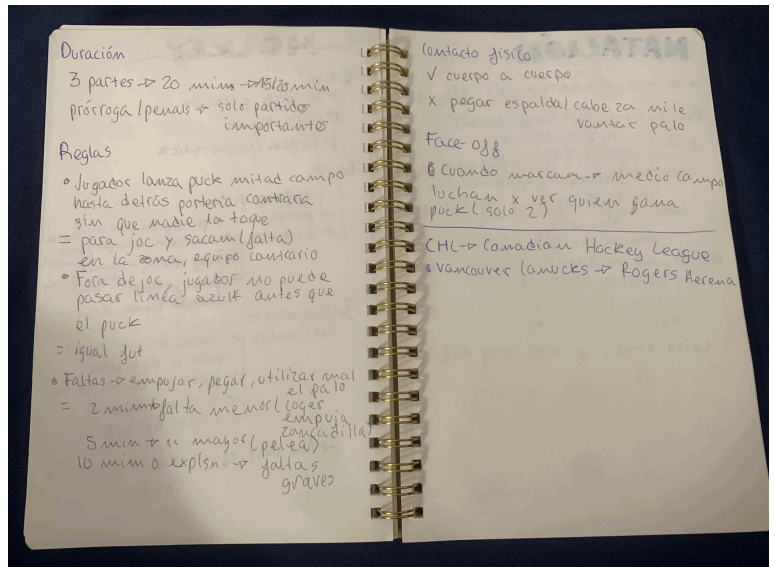 Duración
3 partes → 20 mins → 15/20 min
prórroga / penals → solo partidos
importantes
Reglas
• Jugador lanza puck mitad campo
hasta detrás portería contraria
sin que nadie la toque
= para joc y sacam (falta)
en la zona, equipo contrario
• Fora de joc, jugador no puede
pasar línea azul antes que
el puck
= igual fut
• Faltas → empujar, pegar, utilizar mal
el palo
= 2 min → falta menor (coger
empuja
zancadilla)
5 min → " mayor (pelea)
10 min o explsn. → faltas
graves
Contacto físico
√ cuerpo a cuerpo
x pegar espalda/cabeza ni le
vantar palo
Face-off
Cuando marcan → medio campo
luchan x ver quien gana
puck (solo 2)
CHL → Canadian Hockey League
• Vancouver Canucks → Rogers Aerena